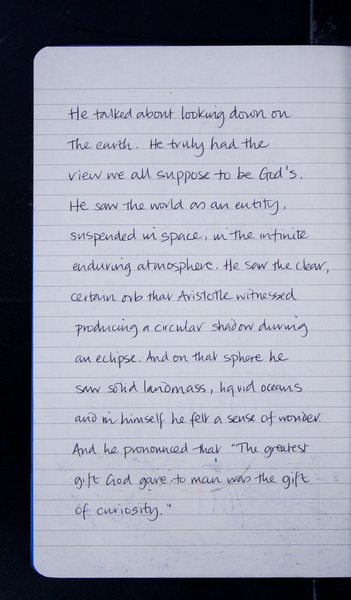 He talked about looking down on
The earth. He truly had the
view we all suppose to be God's.
He saw the world as an entity,
suspended in space, in the infinite
enduring atmosphere. He saw the clear,
certain orb that Aristotle witnessed
producing a circular shadow during
an eclipse. And on that sphere he
saw solid landmass, liquid oceans
and in himself he felt a sense of wonder.
And he pronounced that "The greatest
gift God gave to man was the gift
of curiosity."